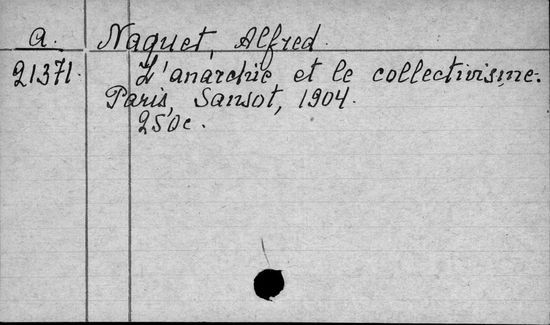 a. Naquet, Alfred.
21371. L'anarchie et le collectivisme.
Paris, Sansot, 1904.
250c.